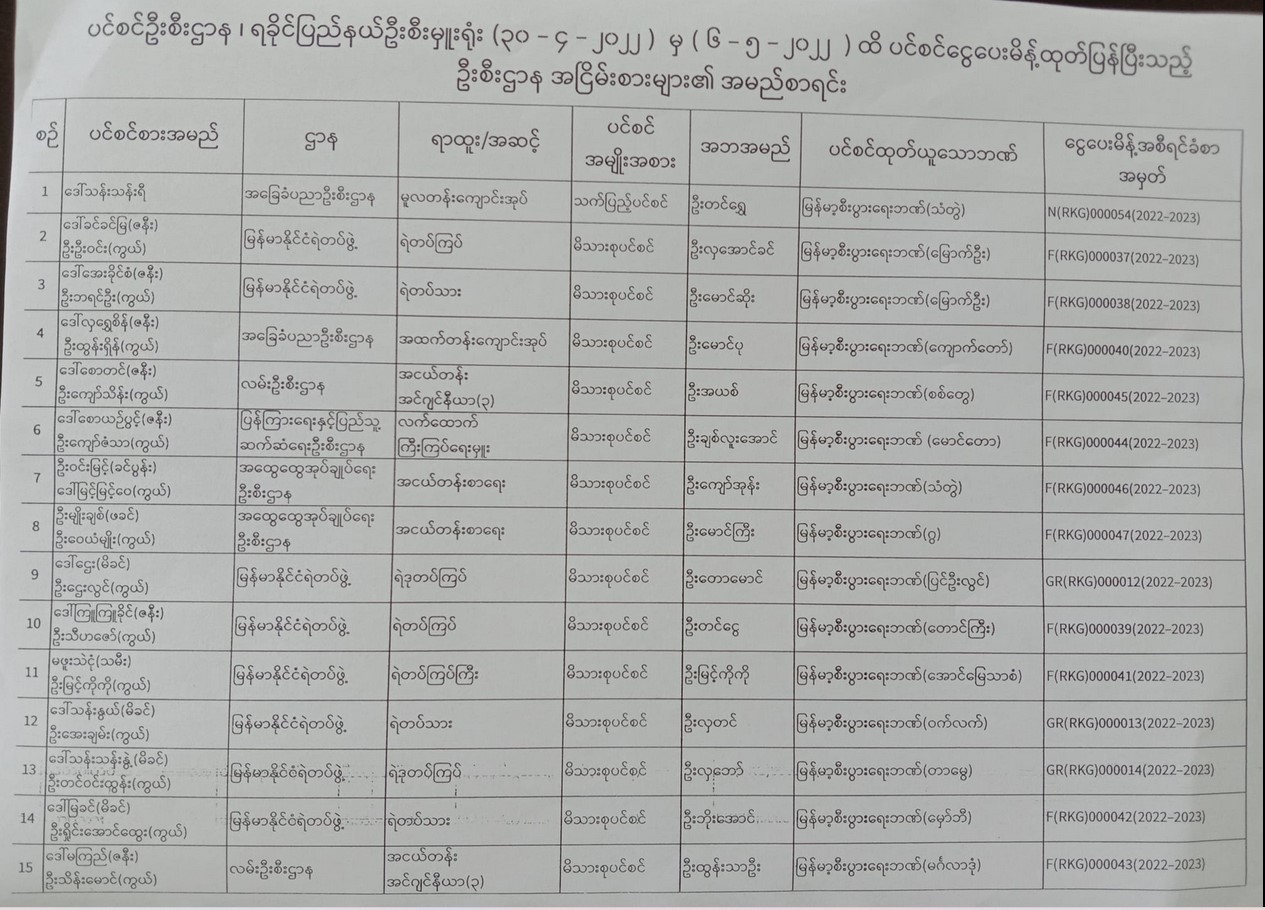 ပင်စင်ဦးစီးဌာန ၊ ရခိုင်ပြည်နယ်ဦးစီးမှူးရုံး (၃၀ – ၄ – ၂၀၂၂ ) မှ ( ၆ – ၅ – ၂၀၂၂ ) ထိ ပင်စင်ငွေပေးမိန့်ထုတ်ပြန်ပြီးသည့်
ဦးစီးဌာန အငြိမ်းစားများ၏ အမည်စာရင်း
စဉ် ပင်စင်စားအမည် ဌာန ရာထူး/အဆင့် ပင်စင် အမျိုးအစား အဘအမည် ပင်စင်ထုတ်ယူသောဘဏ် ငွေပေးမိန့်အစီရင်ခံစာ အမှတ်
1 ဒေါ်သန်းသန်းရီ အခြေခံပညာဦးစီးဌာန မူလတန်းကျောင်းအုပ် သက်ပြည့်ပင်စင် ဦးတင်ရွှေ မြန်မာ့စီးပွားရေးဘဏ်(သံတွဲ) N(RKG)000054(2022-2023)
2 ဒေါ်ခင်ခင်မြ(ဇနီး) ဦးဦးဝင်း(ကွယ်) မြန်မာနိုင်ငံရဲတပ်ဖွဲ့ ရဲတပ်ကြပ် မိသားစုပင်စင် ဦးလှအောင်ခင် မြန်မာ့စီးပွားရေးဘဏ်(မြောက်ဦး) F(RKG)000037(2022-2023)
3 ဒေါ်အေးခိုင်စံ(ဇနီး) ဦးဘရင်ဦး(ကွယ်) မြန်မာနိုင်ငံရဲတပ်ဖွဲ့ ရဲတပ်သား မိသားစုပင်စင် ဦးမောင်ဆိုး မြန်မာ့စီးပွားရေးဘဏ်(မြောက်ဦး) F(RKG)000038(2022-2023)
4 ဒေါ်လှရွှေစိန်(ဇနီး) ဦးထွန်းရှိန်(ကွယ်) အခြေခံပညာဦးစီးဌာန အထက်တန်းကျောင်းအုပ် မိသားစုပင်စင် ဦးမောင်ပု မြန်မာ့စီးပွားရေးဘဏ်(ကျောက်တော်) F(RKG)000040(2022-2023)
5 ဒေါ်စောတင်(ဇနီး) ဦးကျော်သိန်း(ကွယ်) လမ်းဦးစီးဌာန အငယ်တန်း အင်ဂျင်နီယာ(၃) မိသားစုပင်စင် ဦးအယစ် မြန်မာ့စီးပွားရေးဘဏ်(စစ်တွေ) F(RKG)000045(2022-2023)
6 ဒေါ်စောယဉ်ပွင့်(ဇနီး) ဦးကျော်ဇံသာ(ကွယ်) ပြန်ကြားရေးနှင့်ပြည်သူ့ ဆက်ဆံရေးဦးစီးဌာန လက်ထောက် ကြီးကြပ်ရေးမှူး မိသားစုပင်စင် ဦးချစ်လူးအောင် မြန်မာ့စီးပွားရေးဘဏ် (မောင်တော) F(RKG)000044(2022-2023)
7 ဦးဝင်းမြင့်(ခင်ပွန်း) ဒေါ်မြင့်မြင့်ဝေ(ကွယ်) အထွေထွေအုပ်ချုပ်ရေး ဦးစီးဌာန အငယ်တန်းစာရေး မိသားစုပင်စင် ဦးကျော်အုန်း မြန်မာ့စီးပွားရေးဘဏ်(သံတွဲ) F(RKG)000046(2022-2023)
8 ဦးမျိုးချစ်(ဖခင်) ဦးဝေယံမျိုး(ကွယ်) အထွေထွေအုပ်ချုပ်ရေး ဦးစီးဌာန အငယ်တန်းစာရေး မိသားစုပင်စင် ဦးမောင်ကြီး မြန်မာ့စီးပွားရေးဘဏ်(ဂွ) F(RKG)000047(2022-2023)
9 ဒေါ်ဌေး(မိခင်) ဦးဌေးလွင်(ကွယ်) မြန်မာနိုင်ငံရဲတပ်ဖွဲ့ ရဲဒုတပ်ကြပ် မိသားစုပင်စင် ဦးတောမောင် မြန်မာ့စီးပွားရေးဘဏ်(ပြင်ဦးလွင်) GR(RKG)000012(2022-2023)
10 ဒေါ်ကြူကြူခိုင်(ဇနီး) ဦးသီဟဇော်(ကွယ်) မြန်မာနိုင်ငံရဲတပ်ဖွဲ့ ရဲတပ်ကြပ် မိသားစုပင်စင် ဦးတင်ငွေ မြန်မာ့စီးပွားရေးဘဏ်(တောင်ကြီး) F(RKG)000039(2022-2023)
11 မဖူးသဲငုံ(သမီး) ဦးမြင့်ကိုကို(ကွယ်) မြန်မာနိုင်ငံရဲတပ်ဖွဲ့ ရဲတပ်ကြပ်ကြီး မိသားစုပင်စင် ဦးမြင့်ကိုကို မြန်မာ့စီးပွားရေးဘဏ်(အောင်မြေသာစံ) F(RKG)000041(2022-2023)
12 ဒေါ်သန်းနွယ်(မိခင်) ဦးအေးချမ်း(ကွယ်) မြန်မာနိုင်ငံရဲတပ်ဖွဲ့ ရဲတပ်သား မိသားစုပင်စင် ဦးလှတင် မြန်မာ့စီးပွားရေးဘဏ်(ဝက်လက်) GR(RKG)000013(2022-2023)
13 ဒေါ်သန်းသန်းနွဲ့(မိခင်) ဦးတင်ဝင်းထွန်း(ကွယ်) မြန်မာနိုင်ငံရဲတပ်ဖွဲ့ ရဲဒုတပ်ကြပ် မိသားစုပင်စင် ဦးလှဘော် မြန်မာ့စီးပွားရေးဘဏ်(တာမွေ) GR(RKG)000014(2022-2023)
14 ဒေါ်မြခင်(မိခင်) ဦးရှိုင်းအောင်ထွေး(ကွယ်) မြန်မာနိုင်ငံရဲတပ်ဖွဲ့ ရဲတပ်သား မိသားစုပင်စင် ဦးဘိုးအောင် မြန်မာ့စီးပွားရေးဘဏ်(မှော်ဘီ) F(RKG)000042(2022-2023)
15 ဒေါ်မကြည်(ဇနီး) ဦးသိန်းမောင်(ကွယ်) လမ်းဦးစီးဌာန အငယ်တန်း အင်ဂျင်နီယာ(၃) မိသားစုပင်စင် ဦးထွန်းသာဦး မြန်မာ့စီးပွားရေးဘဏ်(မင်္ဂလာဒုံ) F(RKG)000043(2022-2023)